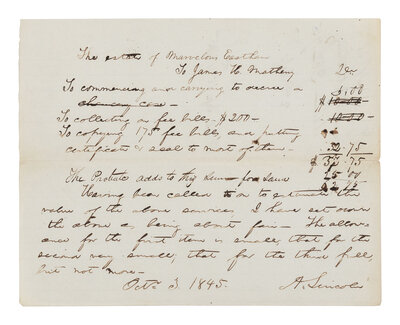 The estate of Marvelous Eastham
To James H. Matheny Dr.
To commencing and carrying to decree a 5.00
chancery case — $10.00
To collecting on fee bills, $200 — 10.00
To copying 175 fee bills and putting
certificate & seal to most of them — 32.75
$ 75
The Probate adds to this sum for same 25 00
Having been called on to estimate the
value of the above services, I have set down
the above as being about fair — The allow-
ance for the first item is small, that for the
second very small, that for the third full
but not more —
Oct. 3. 1845. A. Lincoln